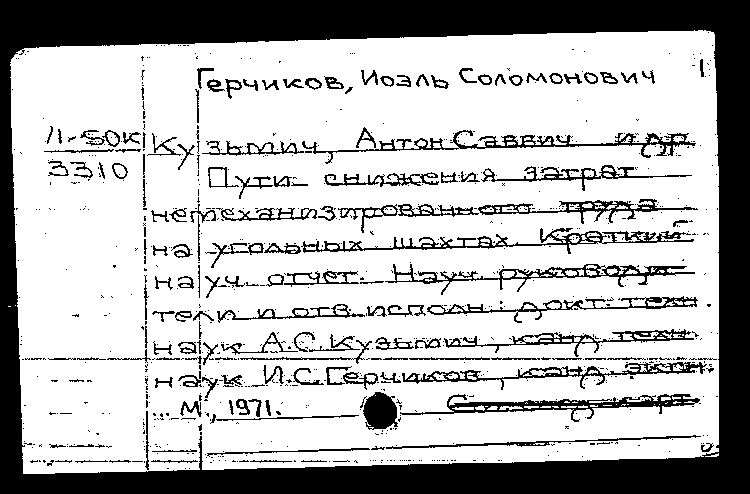 Герчиков, Иоэль Соломонович 1
11-50К Кузьмич, Антон Саввич и др.
3310 Пути снижения затрат
немеханизированного труда
на угольных шахтах. Краткий
науч. отчет. Науч. руководи-
тели и отв. исполн.: докт. техн.
наук А.С. Кузьмич, канд. техн.
наук И.С. Герчиков, канд. экон.
... М., 1971.